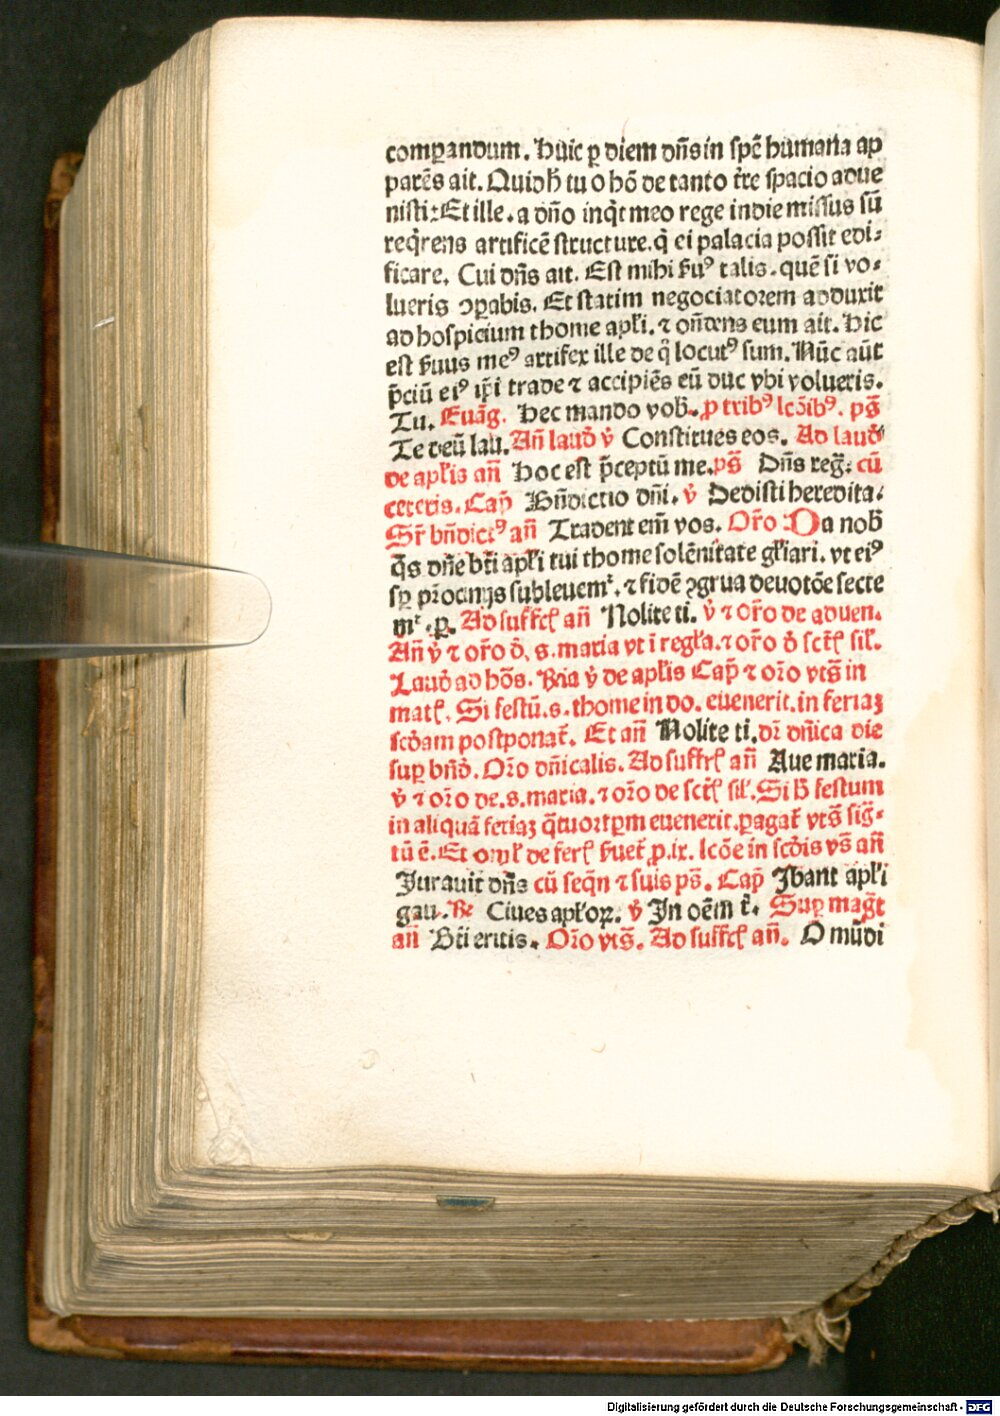 comparandum. Huic ꝑ diem dn̄s in spē humana ap
parēs ait. Quid hͦ tu o hō de tanto t̄re spacio adue
nisti: Et ille. a dn̄o inqͥt meo rege indie missus sū
reqͥrens artificē structure. qͥ ei palacia possit edi⸗
ficare. Cui dn̄s ait. Est mihi ẜuꝰ talis. quē si vo⸗
lueris ꝯꝑabis. Et statim negociatorem adduxit
ad hospicium thome apl̓i. ⁊ on̄dens eum ait. Hic
est ẜuus meꝰ artifex ille de qͦ locutꝰ sum. Nūc aūt
p̄ciū eiꝰ ip̄i trade ⁊ accipiēs eū duc vbi volueris.
Tu. Euāg. Hec mando vob̓. ꝓ tribꝰ lcōibꝰ. ps̄
Te deū lau. An̄ laud̓ v̓ Constitues eos. Ad laud̓
de apl̓is an̄ Hoc est p̄ceptū me. ps̄ Dn̄s reg̓. cū
ceteris. Cap̄ Bn̄dictio dn̄i. v̓ Dedisti heredita.
Sr̄ bn̄dictꝰ an̄ Tradent em̄ vos. Or̄o Da nob̓
q̄s dn̄e bt̄i apl̓i tui thome solēnitate gl̓iari. vt eiꝰ
sꝑ pr̄ocinijs subleuemᷣ. ⁊ fidē ꝯgrua deuotōe secte
mᷣ. ꝑ. Ad suffr̄ an̄ Nolite ti. v̓ ⁊ or̄o de aduen.
An̄ v̓ ⁊ or̄o d̓. s. maria vt ī regl̓a. ⁊ or̄o d̓ sct̄ꝭ sil̓.
Laud̓ ad hōs. Rn̄a v̓ de apl̓is Cap̄ ⁊ or̄o vts̄ in
matꝭ. Si festū. s. thome in do. euenerit. in feriaꝫ
scd̓am postponat̄. Et an̄ Nolite ti. dr̄ dn̄ica die
suꝑ bn̄d̓. Or̄o dn̄icalis. Ad suffr̄ꝭ an̄ Aue maria.
v̓ ⁊ or̄o de. s. maria. ⁊ or̄o de sct̄ꝭ sil̓. Si hͦ festum
in aliquā feriaꝫ qͣtuortꝑm euenerit. ꝑagat̄ vts̄ sig̓⸗
tū ē. Et oml̓ de ferꝭ ẜuet̄ ꝓ. ix. lcōe in scd̓is vs̄ an̄
Jurauit dn̄s cū seqn̄ ⁊ suis ps̄. Cap̄ Jbant apl̓i
gau. R̓ Ciues apl̓oꝝ. v̓ Jn oēm t̄. Suꝑ mag̓t
an̄ Bt̄i eritis. Or̄o vts̄. Ad suffr̄ꝭ an̄. O mūdi
Digitalisierung gefördert durch die Deutsche Forschungsgemeinschaft - DFG